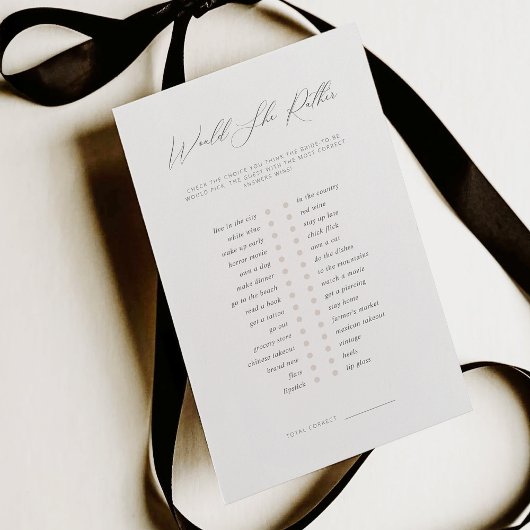 Would She Rather
CHECK THE CHOICE YOU THINK THE BRIDE-TO-BE
WOULD PICK. THE GUEST WITH THE MOST CORRECT
ANSWERS WINS!
live in the city in the country
white wine red wine
wake up early stay up late
horror movie chick flick
own a dog own a cat
make dinner do the dishes
go to the beach to the mountains
read a book watch a movie
get a tattoo get a piercing
go out stay home
grocery store farmer's market
chinese takeout mexican takeout
brand new vintage
flats heels
lipstick lip gloss
TOTAL CORRECT